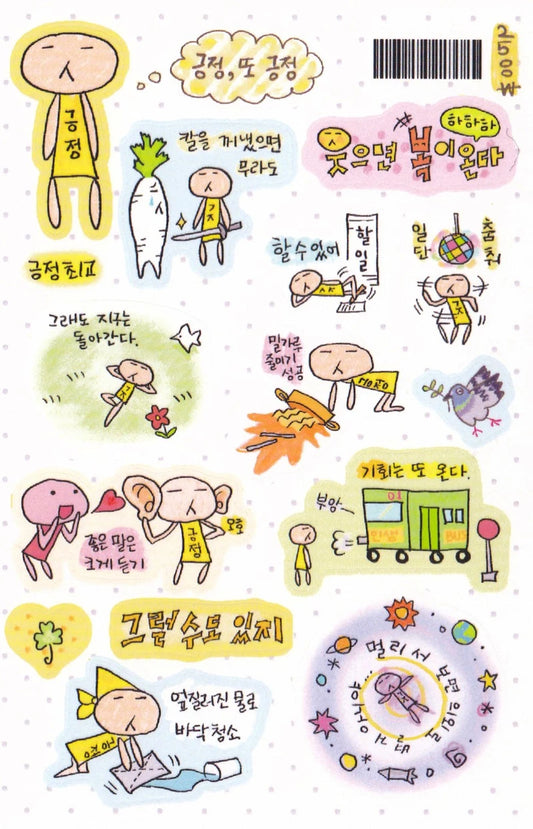 긍정, 또 긍정
2500₩
긍정
긍정최고
칼을 꺼냈으면
무라도
하하하
웃으면 복이온다
할 수 있어
할일
일단
춤춰
그래도 지구는
돌아간다.
밀가루
줄이기
성공
좋은 말은
크게 듣기
긍정
오호
기회는 또 온다.
부앙~
01
인생
BUS
그럴 수도 있지
엎질러진 물로
바닥청소
멀리서 보면